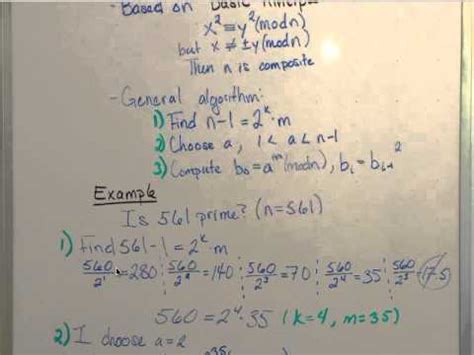 - Based on "Basic Principle"
x² ≡ y² (mod n)
but x ≢ ±y (mod n)
Then n is composite
- General algorithm:
1) Find n-1 = 2^k · m
2) Choose a, 1 < a < n-1
3) Compute b₀ = a^m (mod n), bᵢ = bᵢ₋₁²
Example
Is 561 prime? (n=561)
1) Find 561-1 = 2^k · m
560/2¹ = 280 560/2² = 140 560/2³ = 70 560/2⁴ = 35 560/2⁵ = 17.5
560 = 2⁴·35 (k=4, m=35)
2) I choose a=2